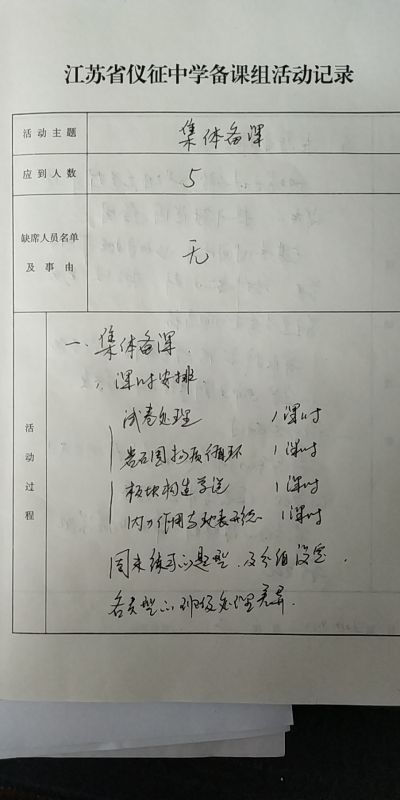 江苏省仪征中学备课组活动记录
活动主题 集体备课
应到人数 5
缺席人员名单及事由 无
活动过程
一、集体备课.
二、课时安排.
试卷处理 1课时
岩石圈物质循环 1课时
板块构造学说 1课时
内力作用与地表形态 1课时
周末练习的题型、及分组设定、
各类型的班级处理差异.